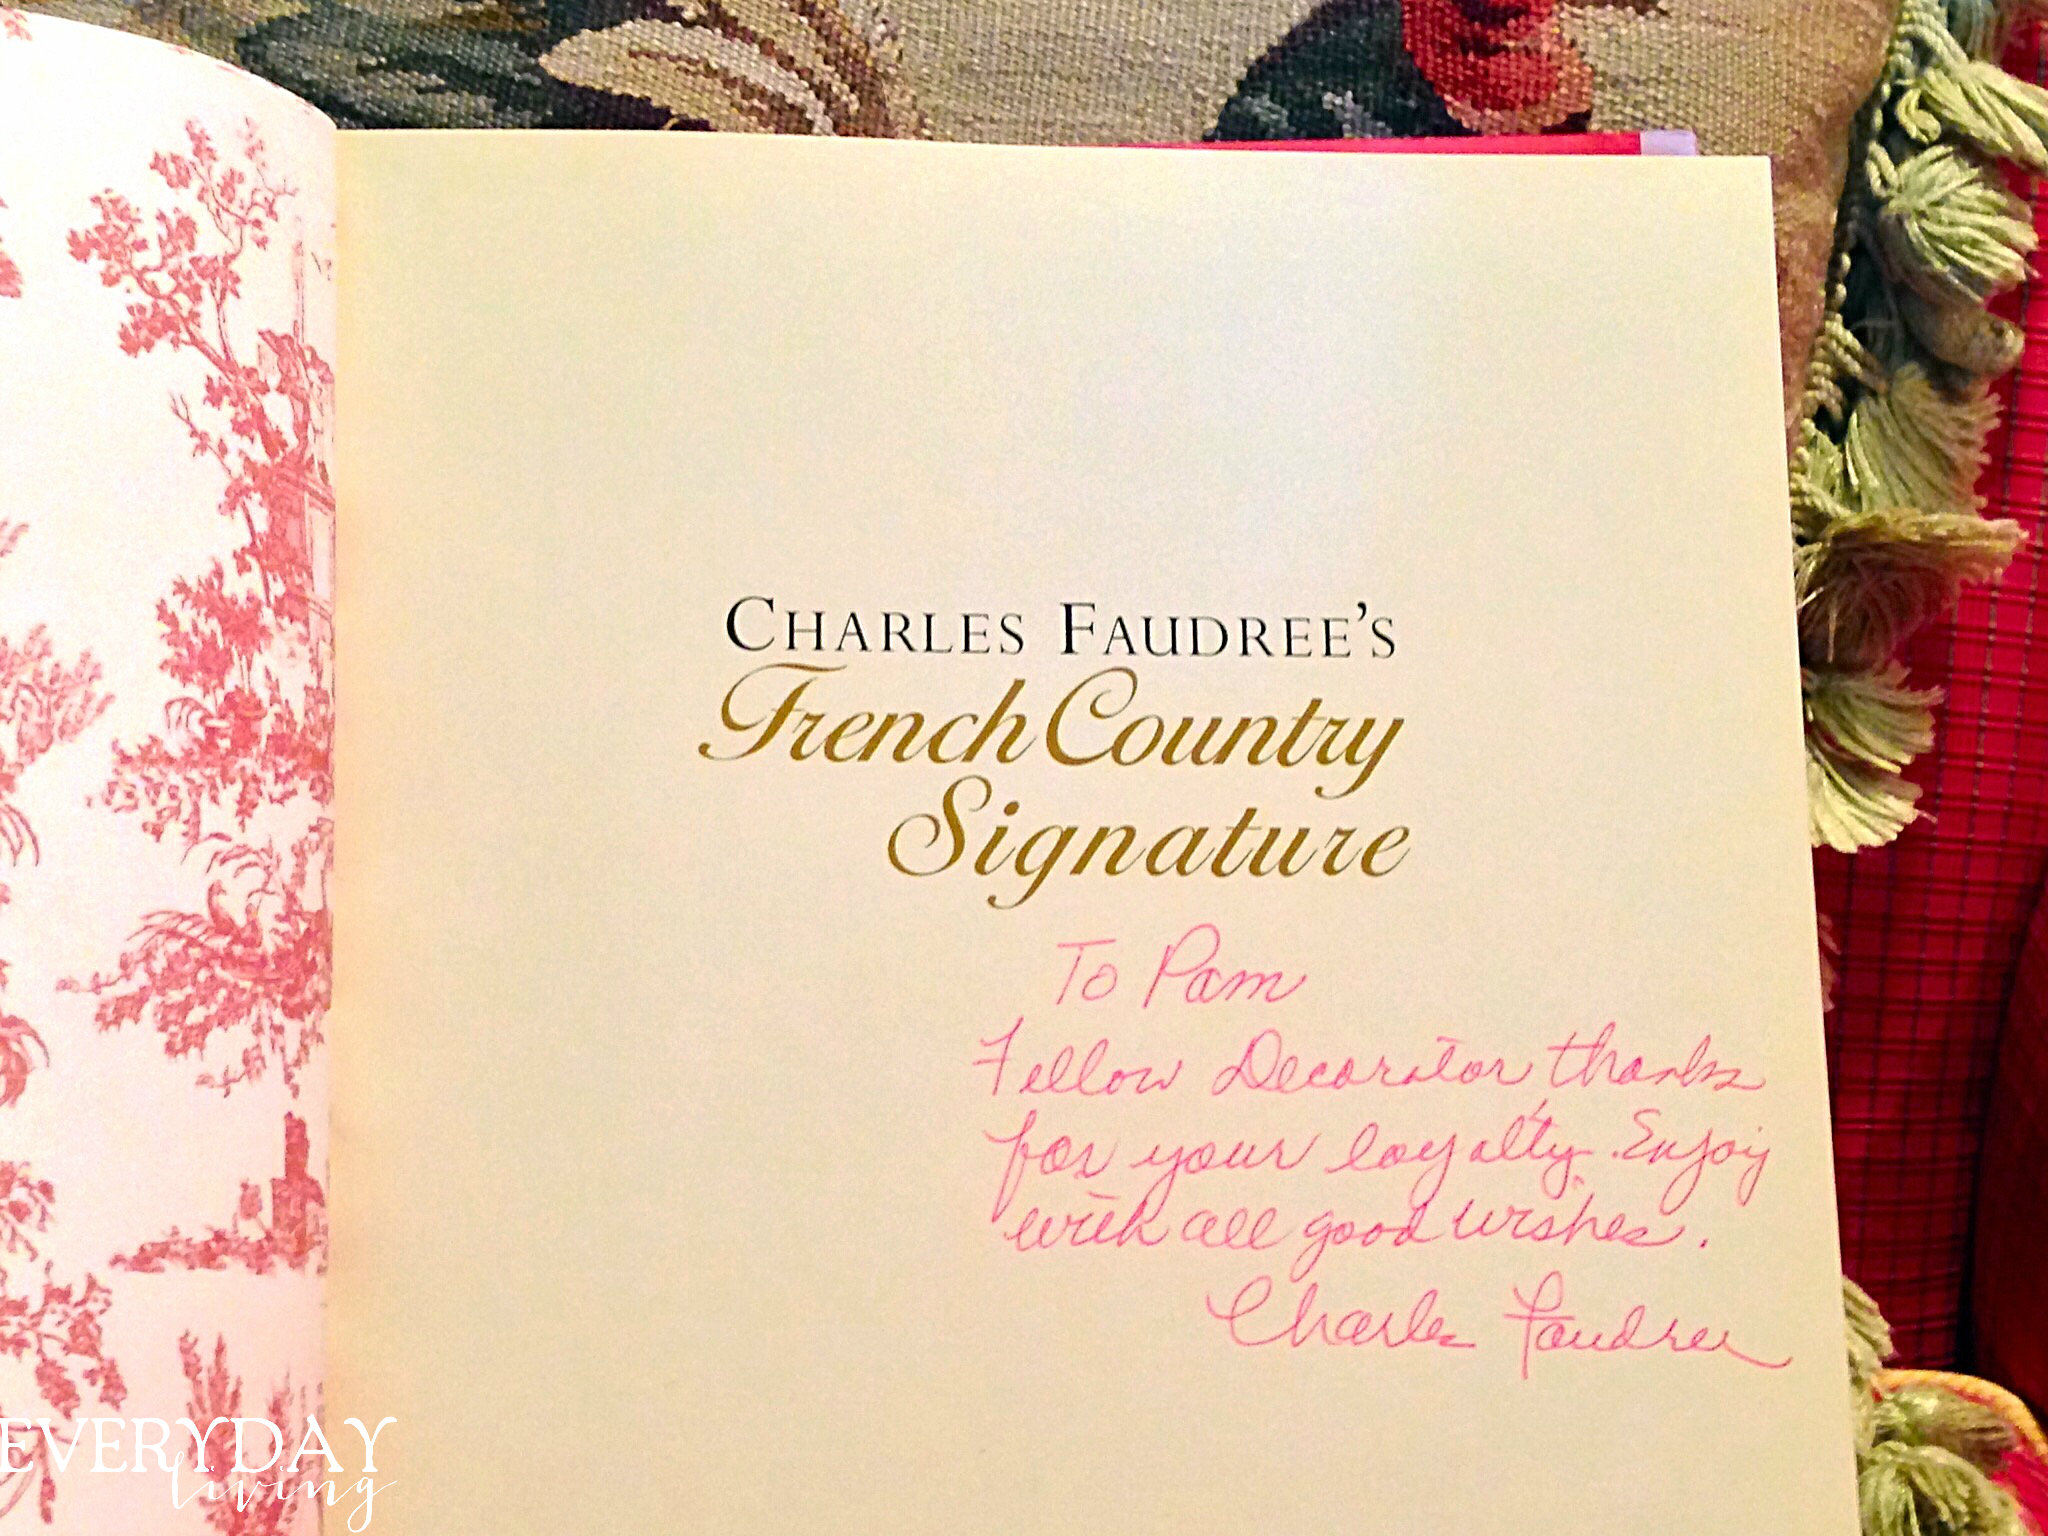 CHARLES FAUDREE'S
French Country
Signature
To Pam
Fellow Decorator, thanks
for your loyalty. Enjoy
with all good wishes.
Charles Faudree
EVERYDAY
living